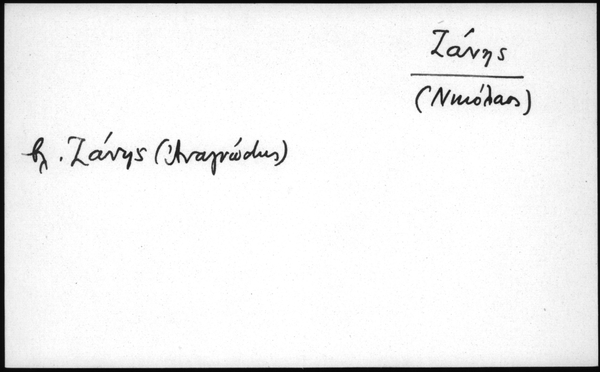 Ζάνης
(Νικόλαος)
βλ. Ζάνης (Ἀναγνώστης)